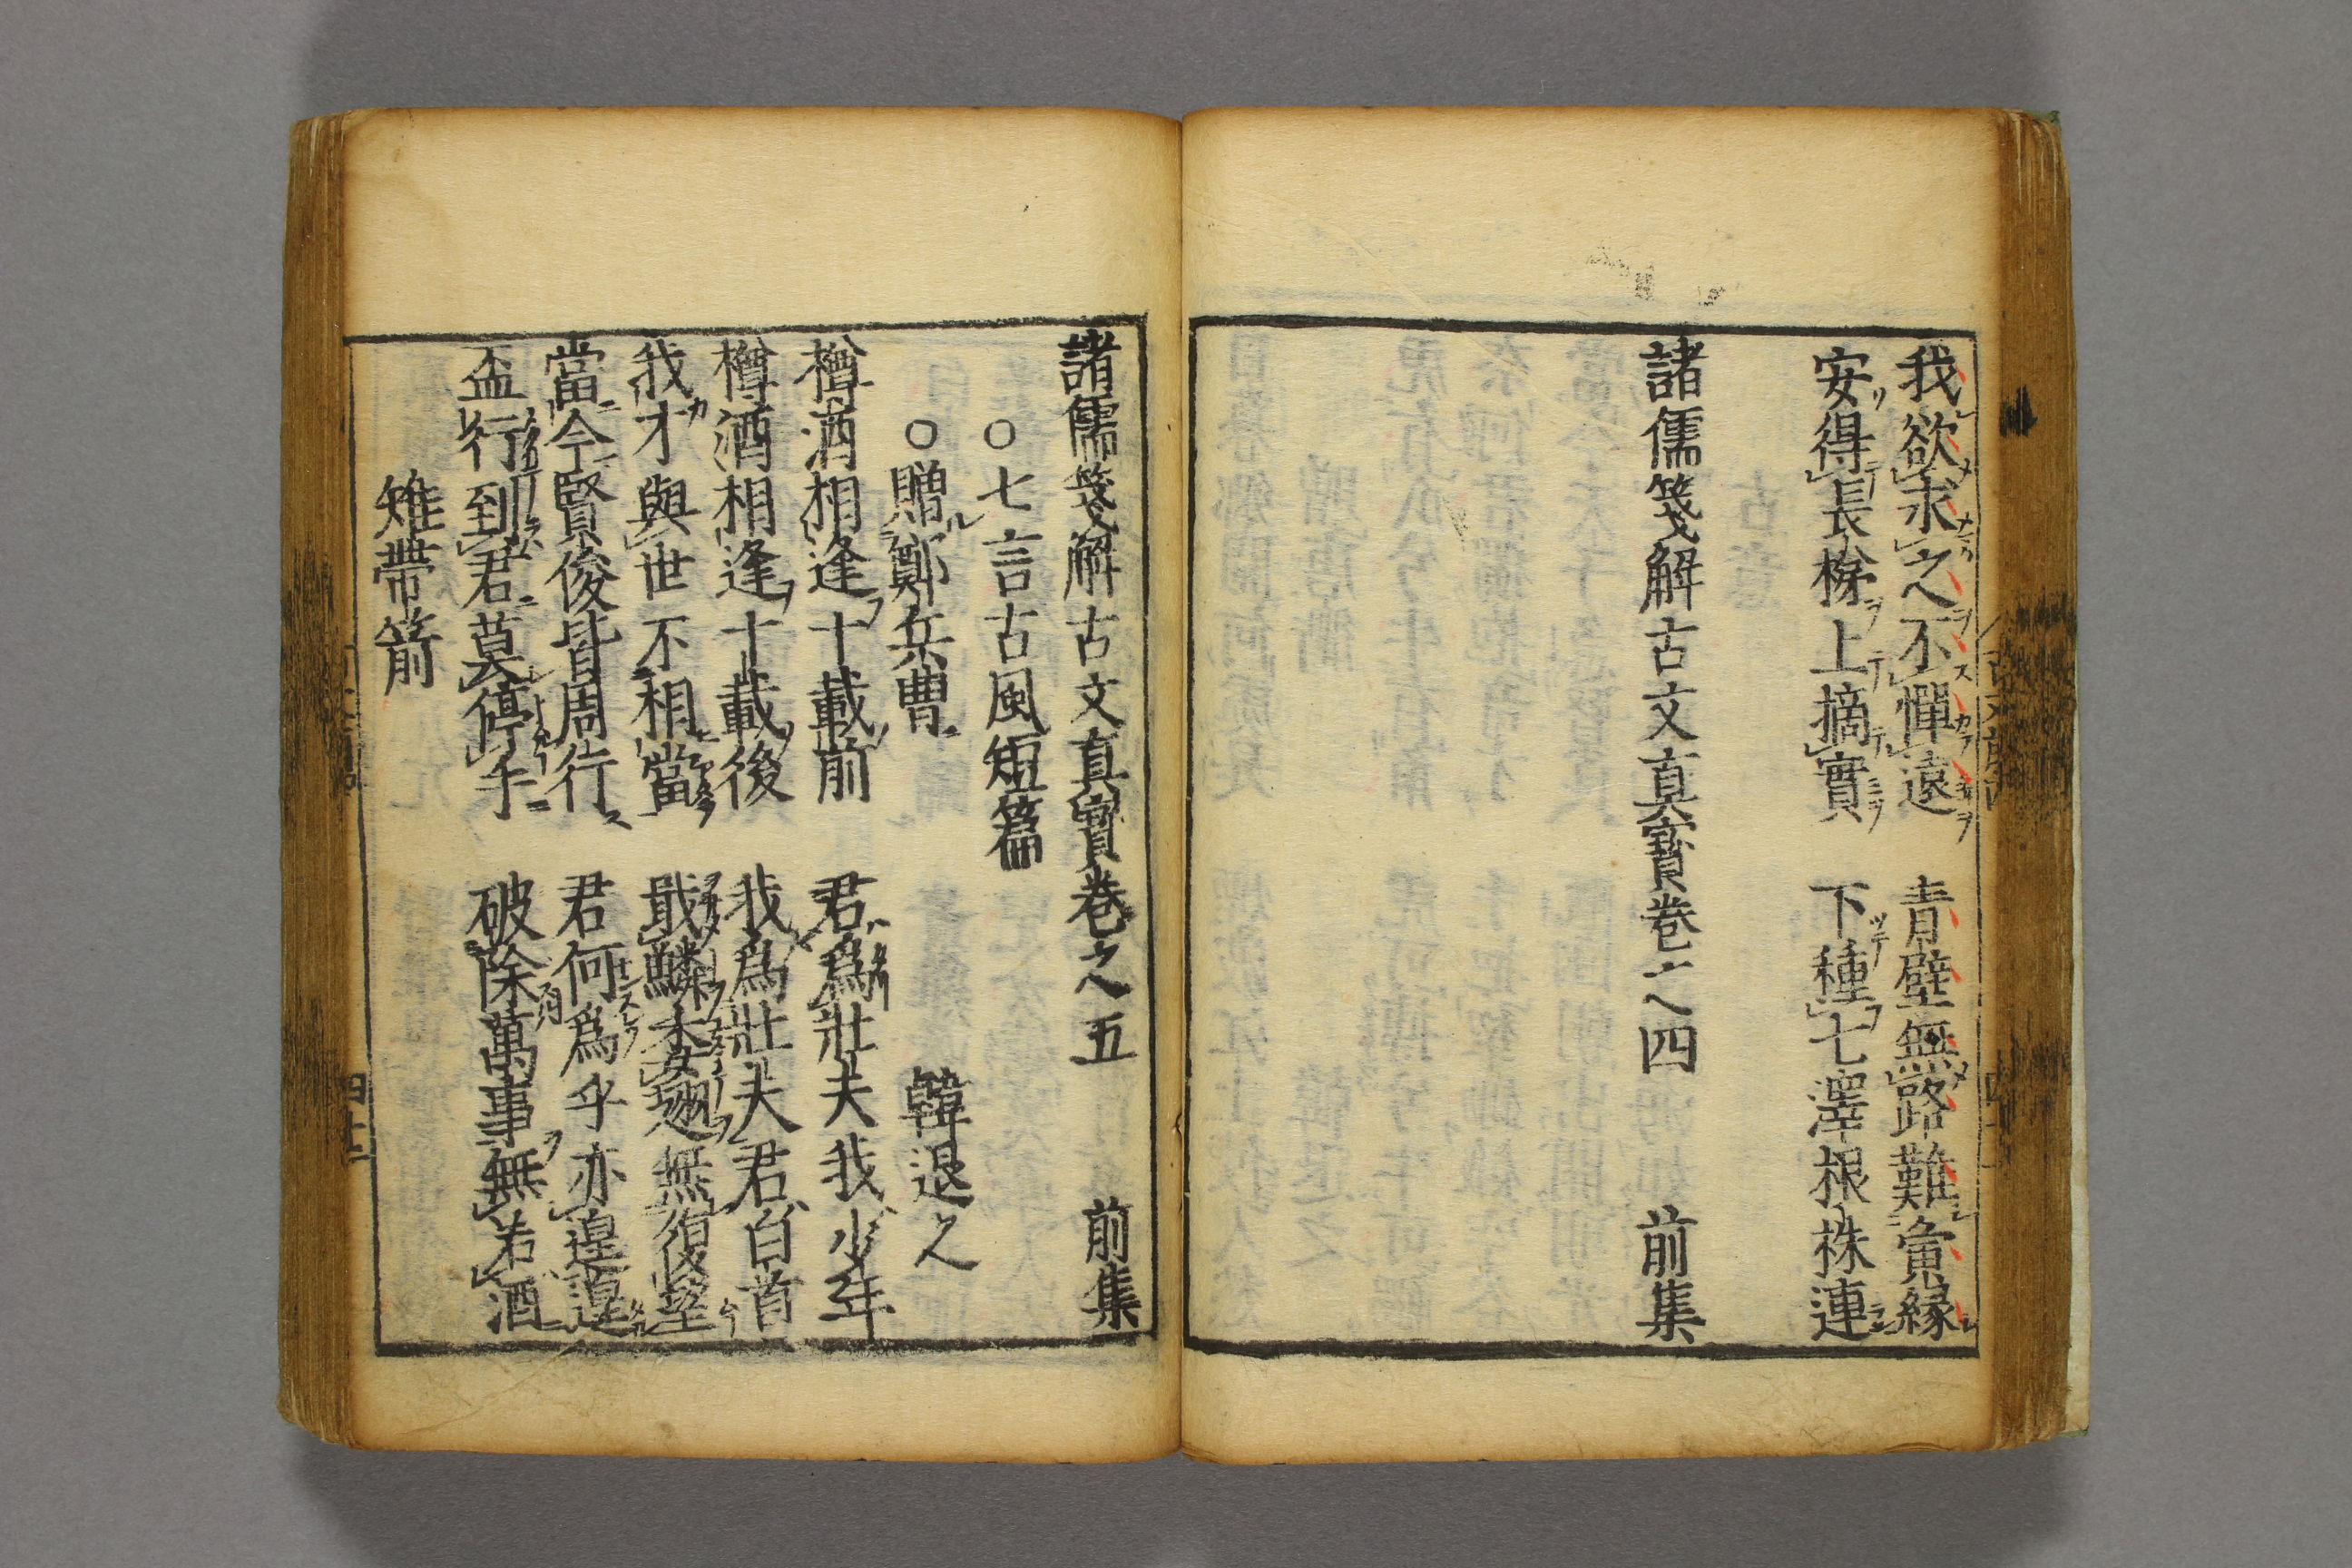 我欲求之不憚遠　青壁無路難夤縁
安得長梯上摘實　下種七澤根株連
諸儒箋解古文真寳巻之四　前集
諸儒箋解古文真寳巻之五　前集
○七言古風短篇
○贈鄭兵曹　韓退之
樽酒相逢十載前　君爲壯夫我少年
樽酒相逢十載後　我爲壯夫君白首
我才與世不相當　戢鱗委翅無復望
當今賢俊皆周行　君何爲乎亦遑遑
盃行到君莫停手　破除萬事無若酒
雉帶箭